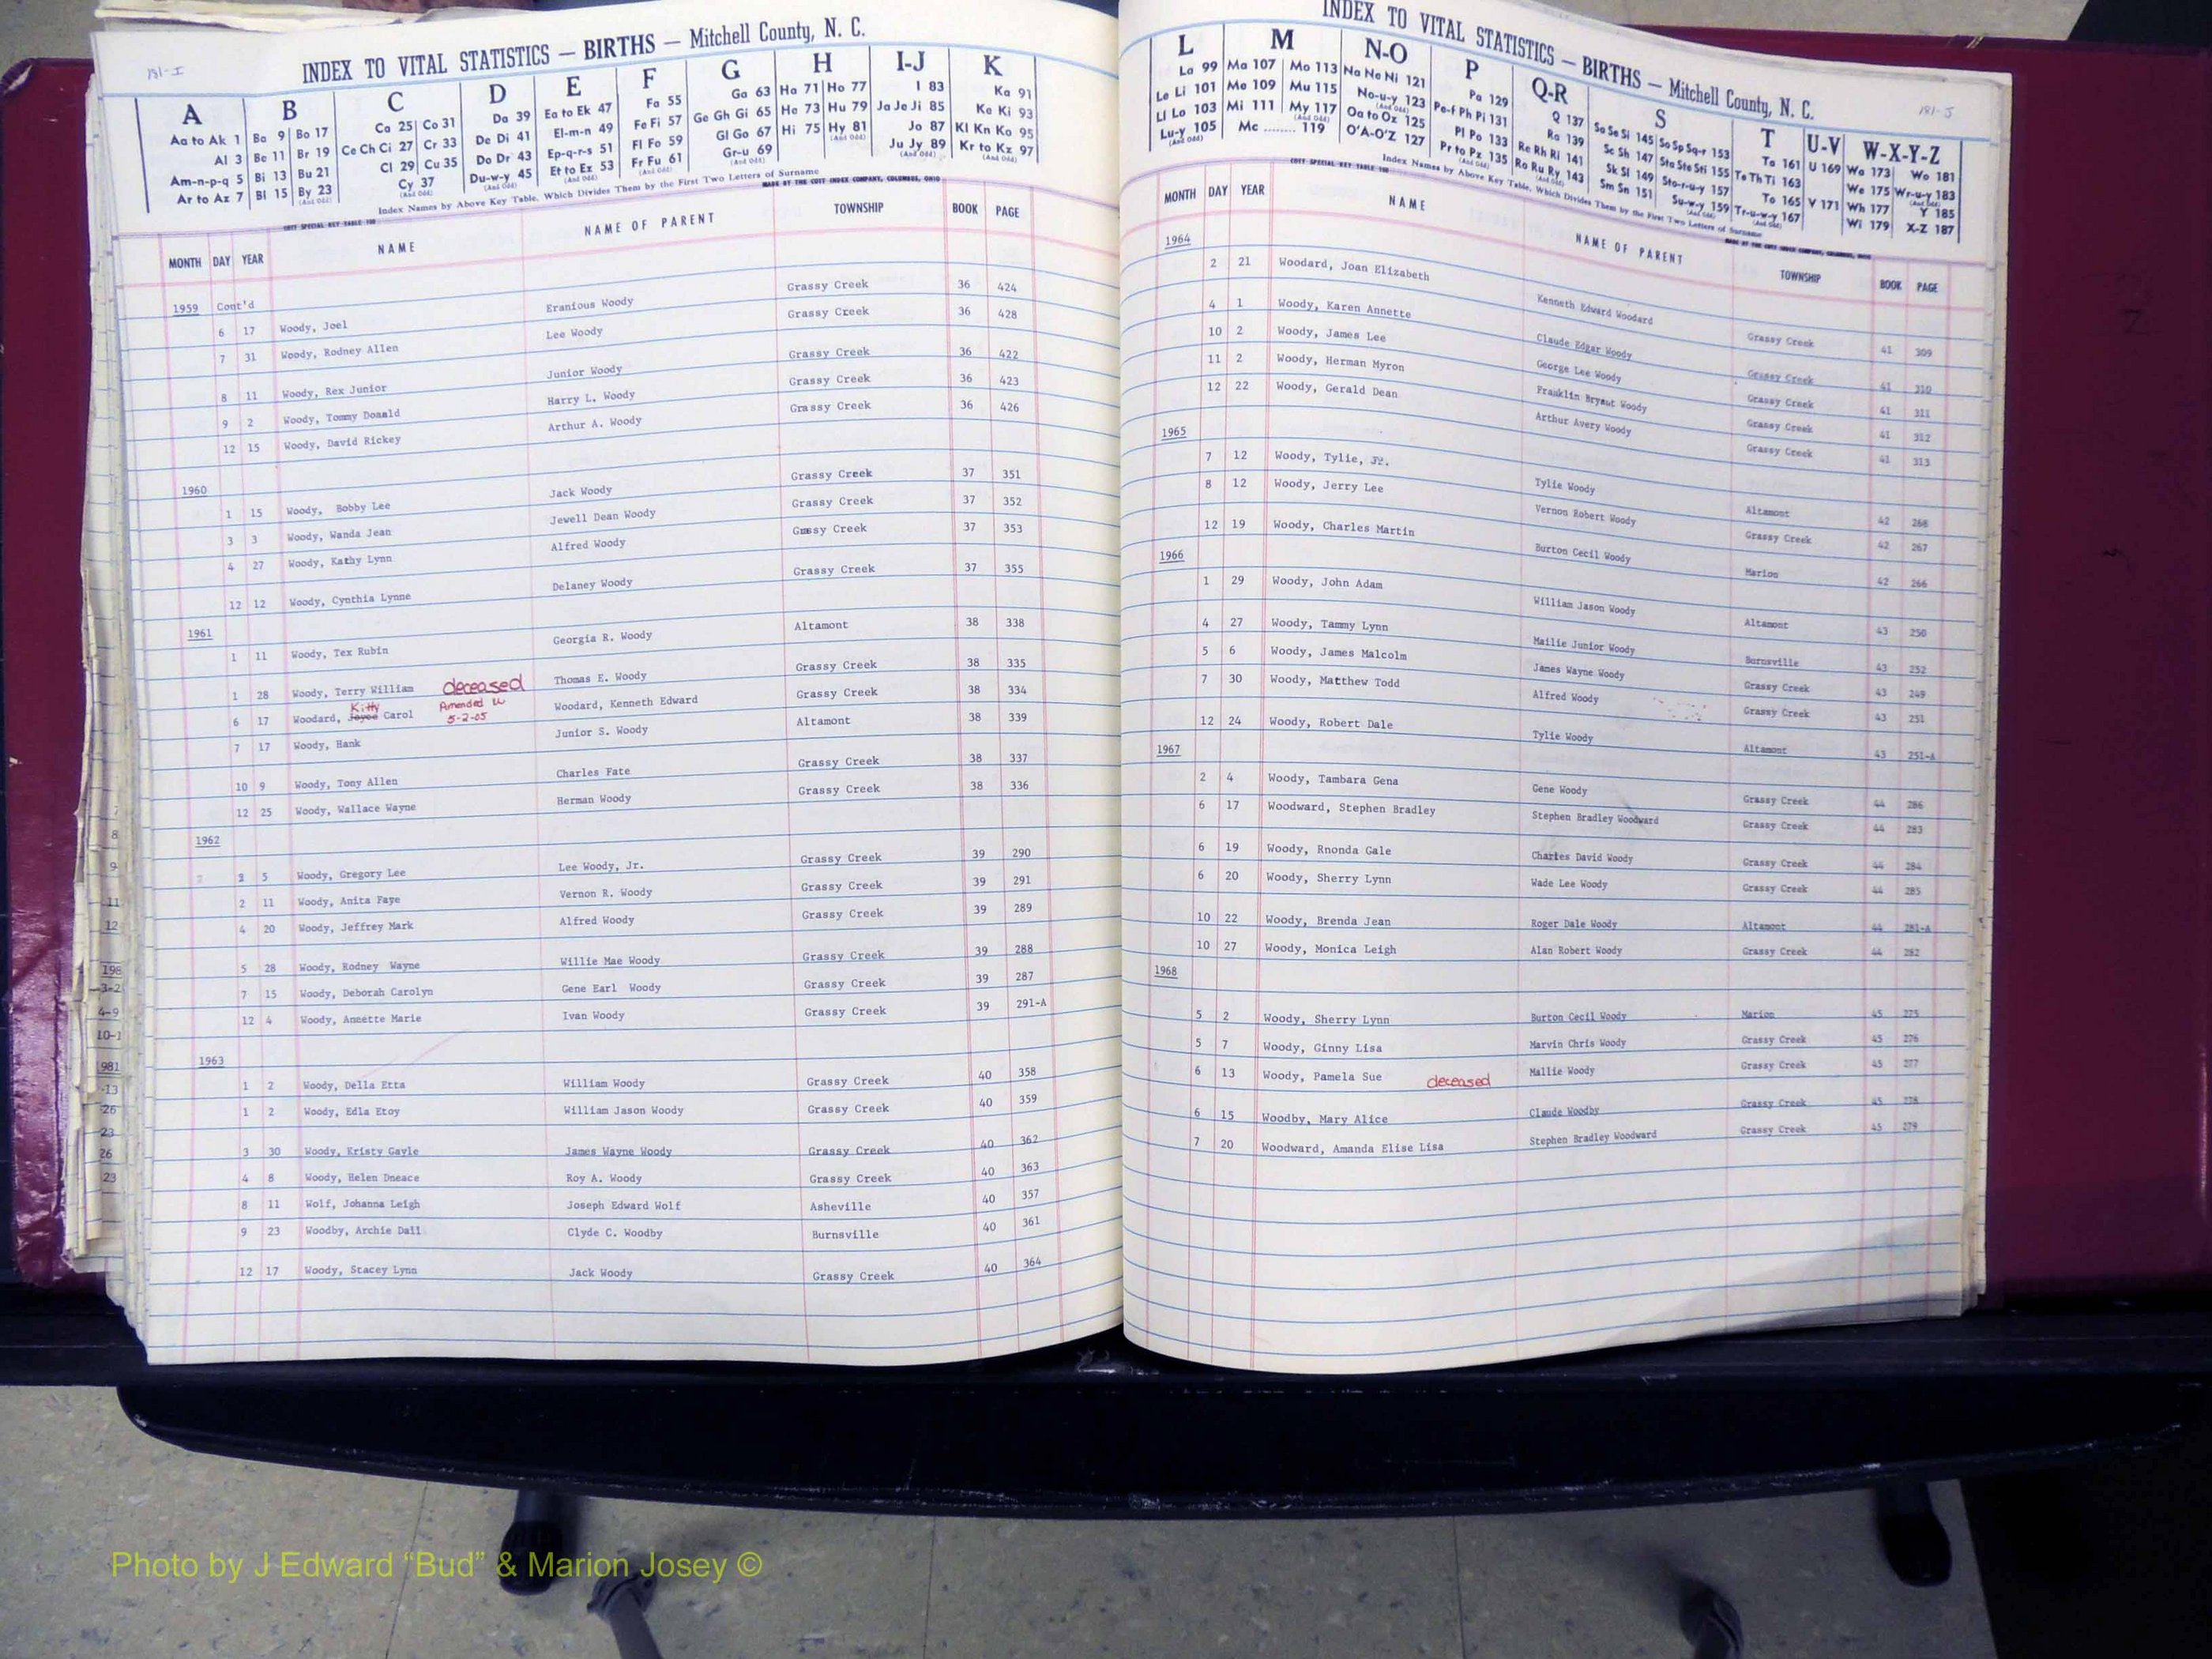 181-I
INDEX TO VITAL STATISTICS — BIRTHS — Mitchell County, N. C.
A B C D E F G H I-J K
Aa to Ak 1 Ba 9 Bo 17 Ca 25 Co 31 Da 39 Ea to Ek 47 Fa 55 Ga 63 Ha 71 Ho 77 I 83 Ka 91
Al 3 Be 11 Br 19 Ce Ch Ci 27 Cr 33 De Di 41 El-m-n 49 Fe Fi 57 Ge Gh Gi 65 He 73 Hu 79 Ja Je Ji 85 Ke Ki 93
Am-n-p-q 5 Bi 13 Bu 21 Cl 29 Cu 35 Do Dr 43 Ep-q-r-s 51 Fl Fo 59 Gl Go 67 Hi 75 Hy 81 (And Odd) Jo 87 Kl Kn Ko 95
Ar to Az 7 Bl 15 By 23 (And Odd) Cy 37 (And Odd) Du-w-y 45 (And Odd) Et to Ez 53 Fr Fu 61 (And Odd) Gr-u 69 (And Odd) Ju Jy 89 (And Odd) Kr to Kz 97 (And Odd)
Index Names by Above Key Table, Which Divides Them by the First Two Letters of Surname
MADE BY THE COTT INDEX COMPANY, COLUMBUS, OHIO
MONTH DAY YEAR NAME NAME OF PARENT TOWNSHIP BOOK PAGE
1959 Cont'd
6 17 Woody, Joel Eranious Woody Grassy Creek 36 424
7 31 Woody, Rodney Allen Lee Woody Grassy Creek 36 428
8 11 Woody, Rex Junior Junior Woody Grassy Creek 36 422
9 2 Woody, Tommy Donald Harry L. Woody Grassy Creek 36 423
12 15 Woody, David Rickey Arthur A. Woody Grassy Creek 36 426
1960
1 15 Woody, Bobby Lee Jack Woody Grassy Creek 37 351
3 3 Woody, Wanda Jean Jewell Dean Woody Grassy Creek 37 352
4 27 Woody, Kathy Lynn Alfred Woody Grassy Creek 37 353
12 12 Woody, Cynthia Lynne Delaney Woody Grassy Creek 37 355
1961
1 11 Woody, Tex Rubin Georgia R. Woody Altamont 38 338
1 28 Woody, Terry William deceased Thomas E. Woody Grassy Creek 38 335
Kitty Amended
6 17 Woodard, Joyce Carol 5-2-05 Woodard, Kenneth Edward Grassy Creek 38 334
7 17 Woody, Hank Junior S. Woody Altamont 38 339
10 9 Woody, Tony Allen Charles Fate Grassy Creek 38 337
12 25 Woody, Wallace Wayne Herman Woody Grassy Creek 38 336
1962
5 Woody, Gregory Lee Lee Woody, Jr. Grassy Creek 39 290
2 11 Woody, Anita Faye Vernon R. Woody Grassy Creek 39 291
4 20 Woody, Jeffrey Mark Alfred Woody Grassy Creek 39 289
5 28 Woody, Rodney Wayne Willie Mae Woody Grassy Creek 39 288
7 15 Woody, Deborah Carolyn Gene Earl Woody Grassy Creek 39 287
12 4 Woody, Annette Marie Ivan Woody Grassy Creek 39 291-A
1963
1 2 Woody, Della Etta William Woody Grassy Creek 40 358
1 2 Woody, Edla Etoy William Jason Woody Grassy Creek 40 359
3 30 Woody, Kristy Gayle James Wayne Woody Grassy Creek 40 362
4 8 Woody, Helen Dneace Roy A. Woody Grassy Creek 40 363
8 11 Wolf, Johanna Leigh Joseph Edward Wolf Asheville 40 357
9 23 Woodby, Archie Dail Clyde C. Woodby Burnsville 40 361
12 17 Woody, Stacey Lynn Jack Woody Grassy Creek 40 364
INDEX TO VITAL STATISTICS — BIRTHS — Mitchell County, N. C.
181-J
L M N-O P Q-R S T U-V W-X-Y-Z
La 99 Ma 107 Mo 113 Na Ne Ni 121 Pa 129 Q 137 Sa Se Si 145 So Sp Sq-r 153 Ta 161 U 169 Wa 173 Wo 181
Le Li 101 Me 109 Mu 115 No-u-y 123 (And Odd) Pe-f Ph Pi 131 Ra 139 Sc Sh 147 Sta Ste Sti 155 Te Th Ti 163 We 175 Wr-u-y 183 (And Odd)
Ll Lo 103 Mi 111 My 117 (And Odd) Oa to Oz 125 Pl Po 133 Re Rh Ri 141 Sk Sl 149 Sto-r-u-y 157 To 165 V 171 Wh 177 Y 185
Lu-y 105 (And Odd) Mc ........ 119 O'A-O'Z 127 Pr to Pz 135 (And Odd) Ro Ru Ry 143 (And Odd) Sm Sn 151 Su-w-y 159 (And Odd) Tr-u-w-y 167 (And Odd) Wi 179 X-Z 187
Index Names by Above Key Table, Which Divides Them by the First Two Letters of Surname
MADE BY THE COTT INDEX COMPANY, COLUMBUS, OHIO
MONTH DAY YEAR NAME NAME OF PARENT TOWNSHIP BOOK PAGE
1964
2 21 Woodard, Joan Elizabeth Kenneth Edward Woodard Grassy Creek 41 309
4 1 Woody, Karen Annette Claude Edgar Woody Grassy Creek 41 310
10 2 Woody, James Lee George Lee Woody Grassy Creek 41 311
11 2 Woody, Herman Myron Franklin Bryant Woody Grassy Creek 41 312
12 22 Woody, Gerald Dean Arthur Avery Woody Grassy Creek 41 313
1965
7 12 Woody, Tylie, Jr. Tylie Woody Altamont 42 268
8 12 Woody, Jerry Lee Vernon Robert Woody Grassy Creek 42 267
12 19 Woody, Charles Martin Burton Cecil Woody Marion 42 266
1966
1 29 Woody, John Adam William Jason Woody Altamont 43 250
4 27 Woody, Tammy Lynn Mailie Junior Woody Burnsville 43 252
5 6 Woody, James Malcolm James Wayne Woody Grassy Creek 43 249
7 30 Woody, Matthew Todd Alfred Woody Grassy Creek 43 251
12 24 Woody, Robert Dale Tylie Woody Altamont 43 251-A
1967
2 4 Woody, Tambara Gena Gene Woody Grassy Creek 44 286
6 17 Woodward, Stephen Bradley Stephen Bradley Woodward Grassy Creek 44 283
6 19 Woody, Rnonda Gale Charles David Woody Grassy Creek 44 284
6 20 Woody, Sherry Lynn Wade Lee Woody Grassy Creek 44 285
10 22 Woody, Brenda Jean Roger Dale Woody Altamont 44 281-A
10 27 Woody, Monica Leigh Alan Robert Woody Grassy Creek 44 282
1968
5 2 Woody, Sherry Lynn Burton Cecil Woody Marion 45 275
5 7 Woody, Ginny Lisa Marvin Chris Woody Grassy Creek 45 276
6 13 Woody, Pamela Sue deceased Mallie Woody Grassy Creek 45 277
6 15 Woodby, Mary Alice Claude Woodby Grassy Creek 45 278
7 20 Woodward, Amanda Elise Lisa Stephen Bradley Woodward Grassy Creek 45 279
Photo by J Edward “Bud” & Marion Josey ©